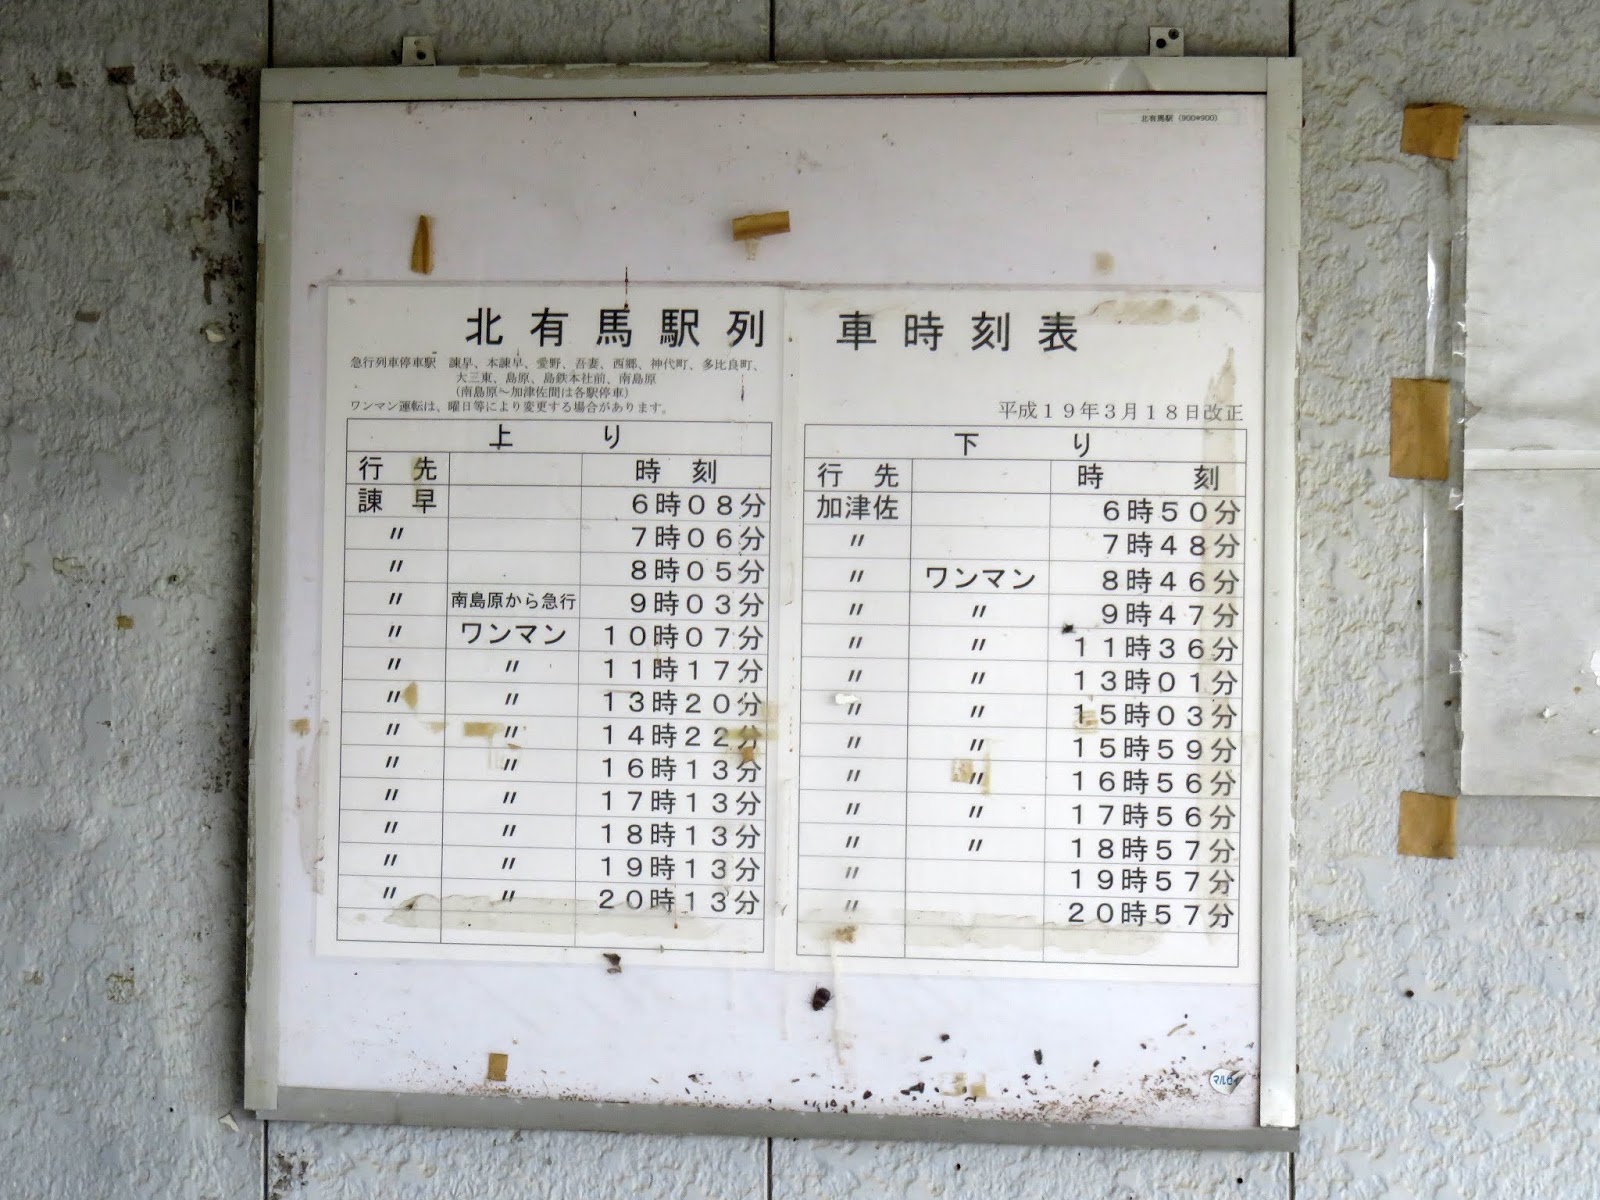 北有馬駅（900*900）
北有馬駅列車時刻表
急行列車停車駅　諫早、本諫早、愛野、吾妻、西郷、神代町、多比良町、
大三東、島原、島鉄本社前、南島原
（南島原～加津佐間は各駅停車）
ワンマン運転は、曜日等により変更する場合があります。
平成１９年３月１８日改正
上　り
行　先　時　刻
諫　早　６時０８分
〃　７時０６分
〃　８時０５分
〃　南島原から急行　９時０３分
〃　ワンマン　１０時０７分
〃　〃　１１時１７分
〃　〃　１３時２０分
〃　〃　１４時２２分
〃　〃　１６時１３分
〃　〃　１７時１３分
〃　〃　１８時１３分
〃　〃　１９時１３分
〃　〃　２０時１３分
下　り
行　先　時　刻
加津佐　６時５０分
〃　７時４８分
〃　ワンマン　８時４６分
〃　〃　９時４７分
〃　〃　１１時３６分
〃　〃　１３時０１分
〃　〃　１５時０３分
〃　〃　１５時５９分
〃　〃　１６時５６分
〃　〃　１７時５６分
〃　〃　１８時５７分
〃　１９時５７分
〃　２０時５７分